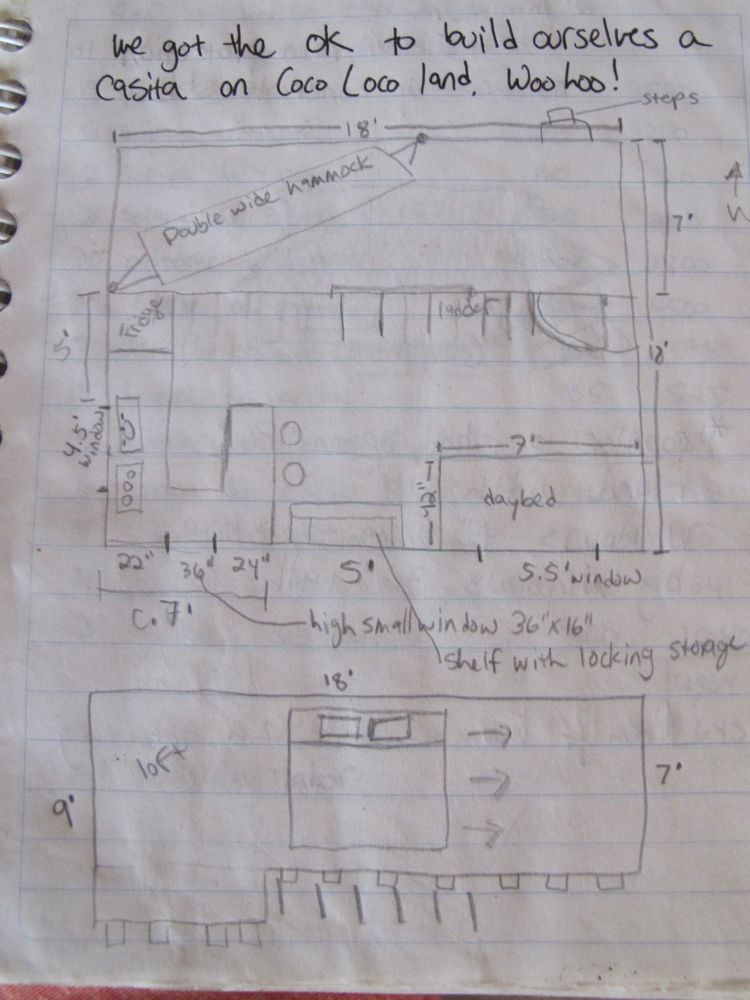 we got the ok to build ourselves a
casita on Coco Loco land. Woohoo!
steps
18'
Double wide hammock
7'
N
Fridge
ladder
5'
18'
4.5'
window
7'
42"
daybed
22"
36"
24"
5'
5.5' window
c. 7'
high small window 36"x16"
shelf with locking storage
18'
loft
7'
9'